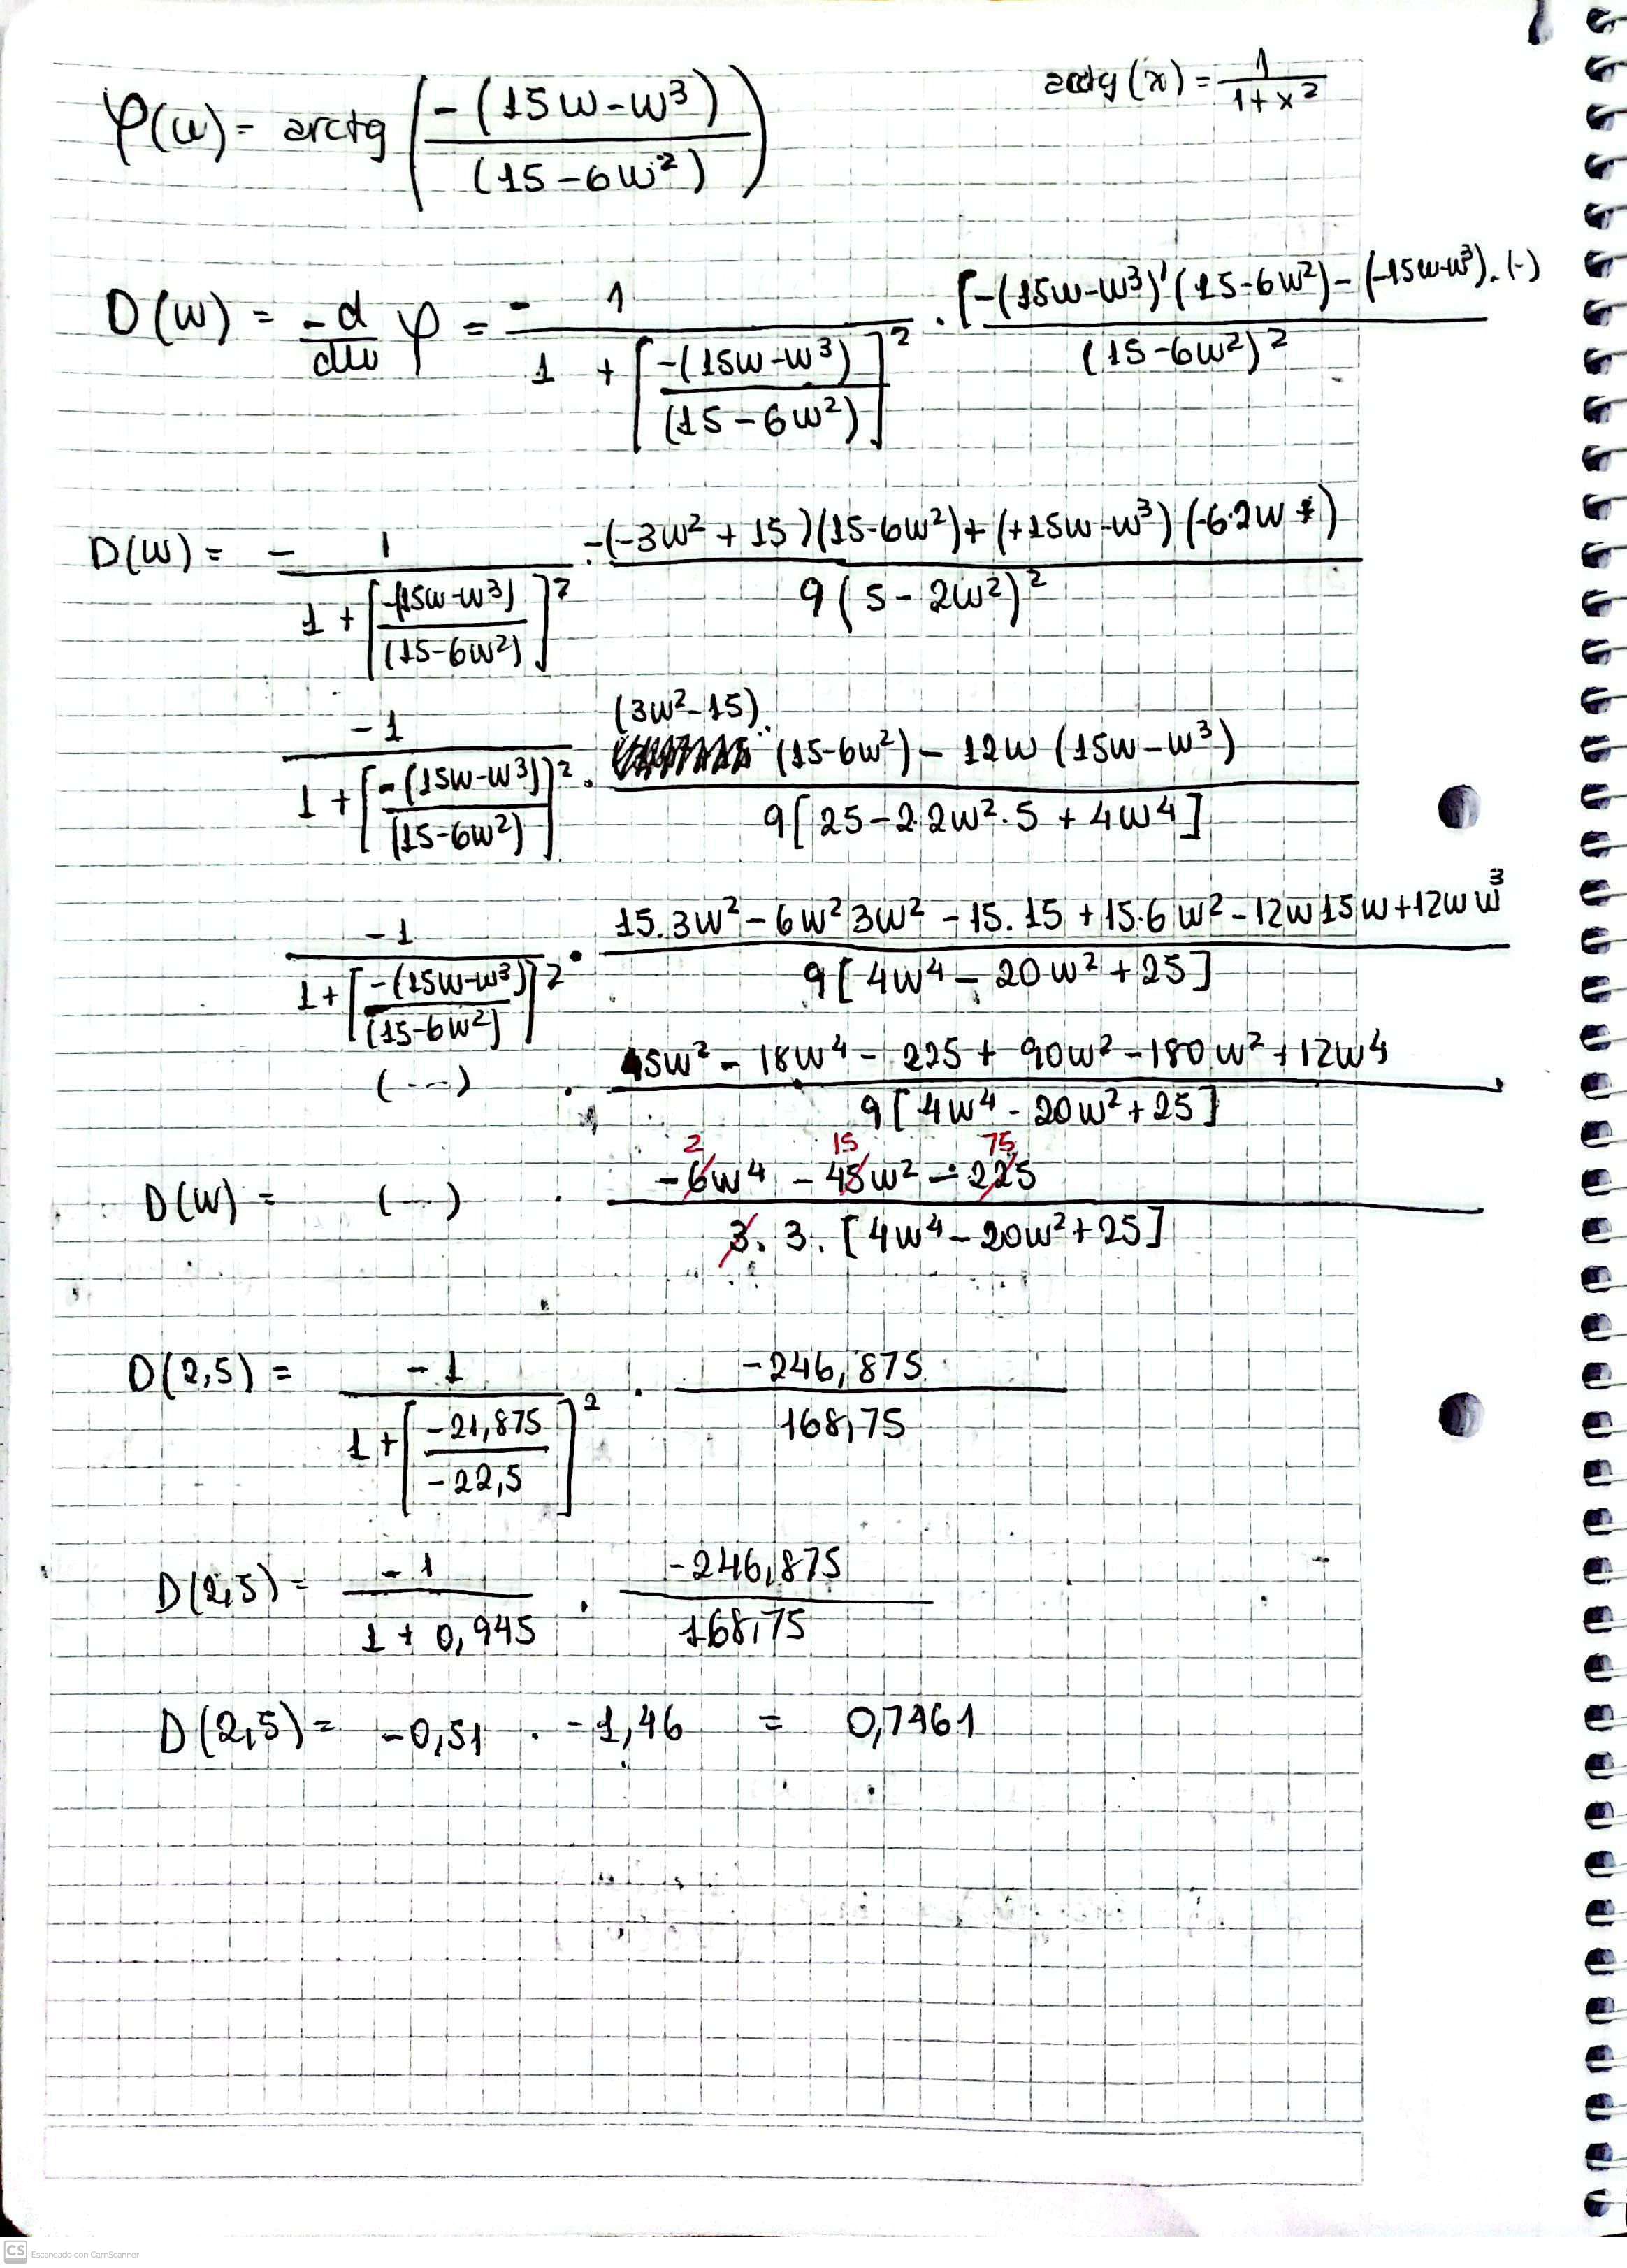 arctg (x) = 1/(1+x²)
φ(w) = arctg (-(15w-w³)/(15-6w²))
D(w) = -d/dw φ = - 1/(1 + [-(15w-w³)/(15-6w²)]²) · [-(15w-w³)'(15-6w²) - (-15w-w³).(-)/(15-6w²)²
D(w) = - 1/(1 + [-(15w-w³)/(15-6w²)]²) · -(-3w² + 15)(15-6w²) + (+15w-w³)(-6·2w)/9(5-2w²)²
-1/(1 + [-(15w-w³)/(15-6w²)]²) · (3w²-15)·(15-6w²) - 12w (15w-w³)/9[25-2.2w².5 + 4w⁴]
-1/(1+[-(15w-w³)/(15-6w²)]²) · 15.3w² - 6w²3w² - 15.15 + 15.6w² - 12w15w + 12ww³/9[4w⁴ - 20w² + 25]
(---) · 45w² - 18w⁴ - 225 + 90w² - 180w² + 12w⁴/9[4w⁴ - 20w² + 25]
2 15 75
D(w) = (---) · -6w⁴ - 45w² - 225/3.3.[4w⁴ - 20w² + 25]
D(2,5) = -1/(1+[-21,875/-22,5]²) · -246,875/168,75
D(2,5) = -1/(1 + 0,945) · -246,875/168,75
D(2,5) = -0,51 . -1,46 = 0,7461
CS Escaneado con CamScanner